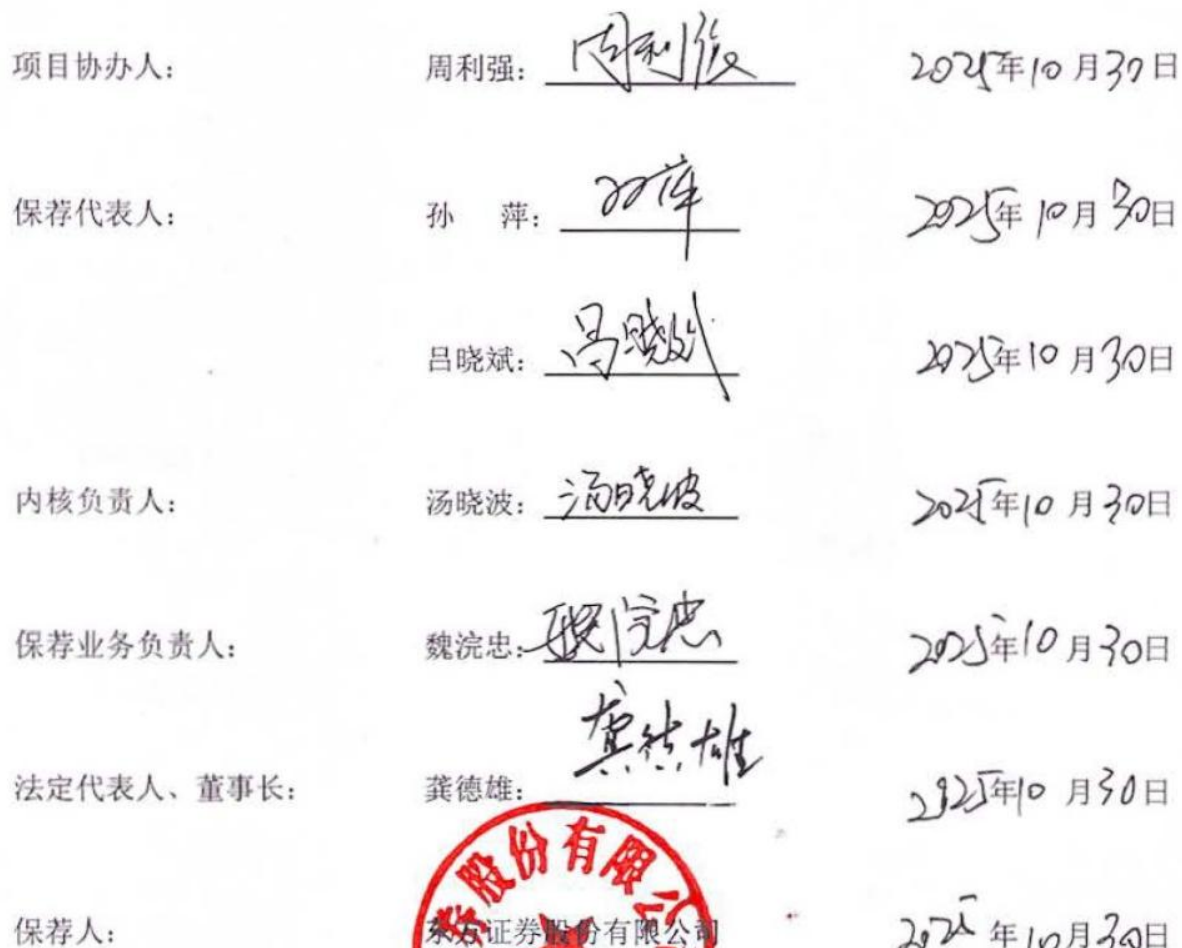 项目协办人： 周利强：周利强 2025年10月30日
保荐代表人： 孙 萍：孙萍 2025年10月30日
吕晓斌：吕晓斌 2025年10月30日
内核负责人： 汤晓波：汤晓波 2025年10月30日
保荐业务负责人： 魏浣忠：魏浣忠 2025年10月30日
法定代表人、董事长： 龚德雄：龚德雄 2025年10月30日
券股份有限公
保荐人： 东方证券股份有限公司 2025年10月30日